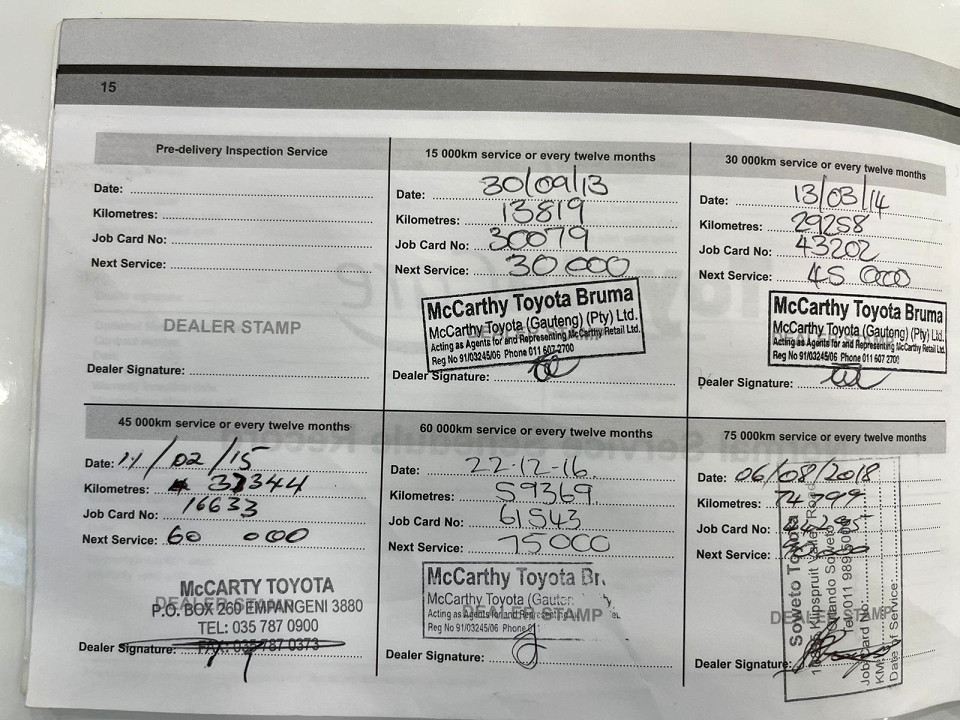 15
Pre-delivery Inspection Service
Date:
Kilometres:
Job Card No:
Next Service:
DEALER STAMP
Dealer Signature:
15 000km service or every twelve months
Date: 30/09/13
Kilometres: 13819
Job Card No: 30079
Next Service: 30 000
McCarthy Toyota Bruma
McCarthy Toyota (Gauteng) (Pty) Ltd.
Acting as Agents for and Representing McCarthy Retail Ltd.
Reg No 91/03245/06 Phone 011 607 2700
Dealer Signature:
30 000km service or every twelve months
Date: 13/03/14
Kilometres: 29258
Job Card No: 43202
Next Service: 45 000
McCarthy Toyota Bruma
McCarthy Toyota (Gauteng) (Pty) Ltd.
Acting as Agents for and Representing McCarthy Retail Ltd.
Reg No 91/03245/06 Phone 011 607 2700
Dealer Signature:
45 000km service or every twelve months
Date: 11/02/15
Kilometres: 37344
Job Card No: 16633
Next Service: 60 000
McCARTY TOYOTA
DEALER STAMP
P.O. BOX 260 EMPANGENI 3880
TEL: 035 787 0900
FAX: 035 787 0373
Dealer Signature:
60 000km service or every twelve months
Date: 22-12-16
Kilometres: 59369
Job Card No: 61543
Next Service: 75000
McCarthy Toyota Br
McCarthy Toyota (Gauten
Acting as Agents for and
Reg No 91/03245/06 Phone
DEALER STAMP
Dealer Signature:
75 000km service or every twelve months
Date: 06/08/2018
Kilometres: 74799
Job Card No:
Next Service:
DEALER STAMP
Dealer Signature:
Soweto Toyota
Klipspruit Valley Road
Orlando Soweto
Job Card No
KM
Date of Service: